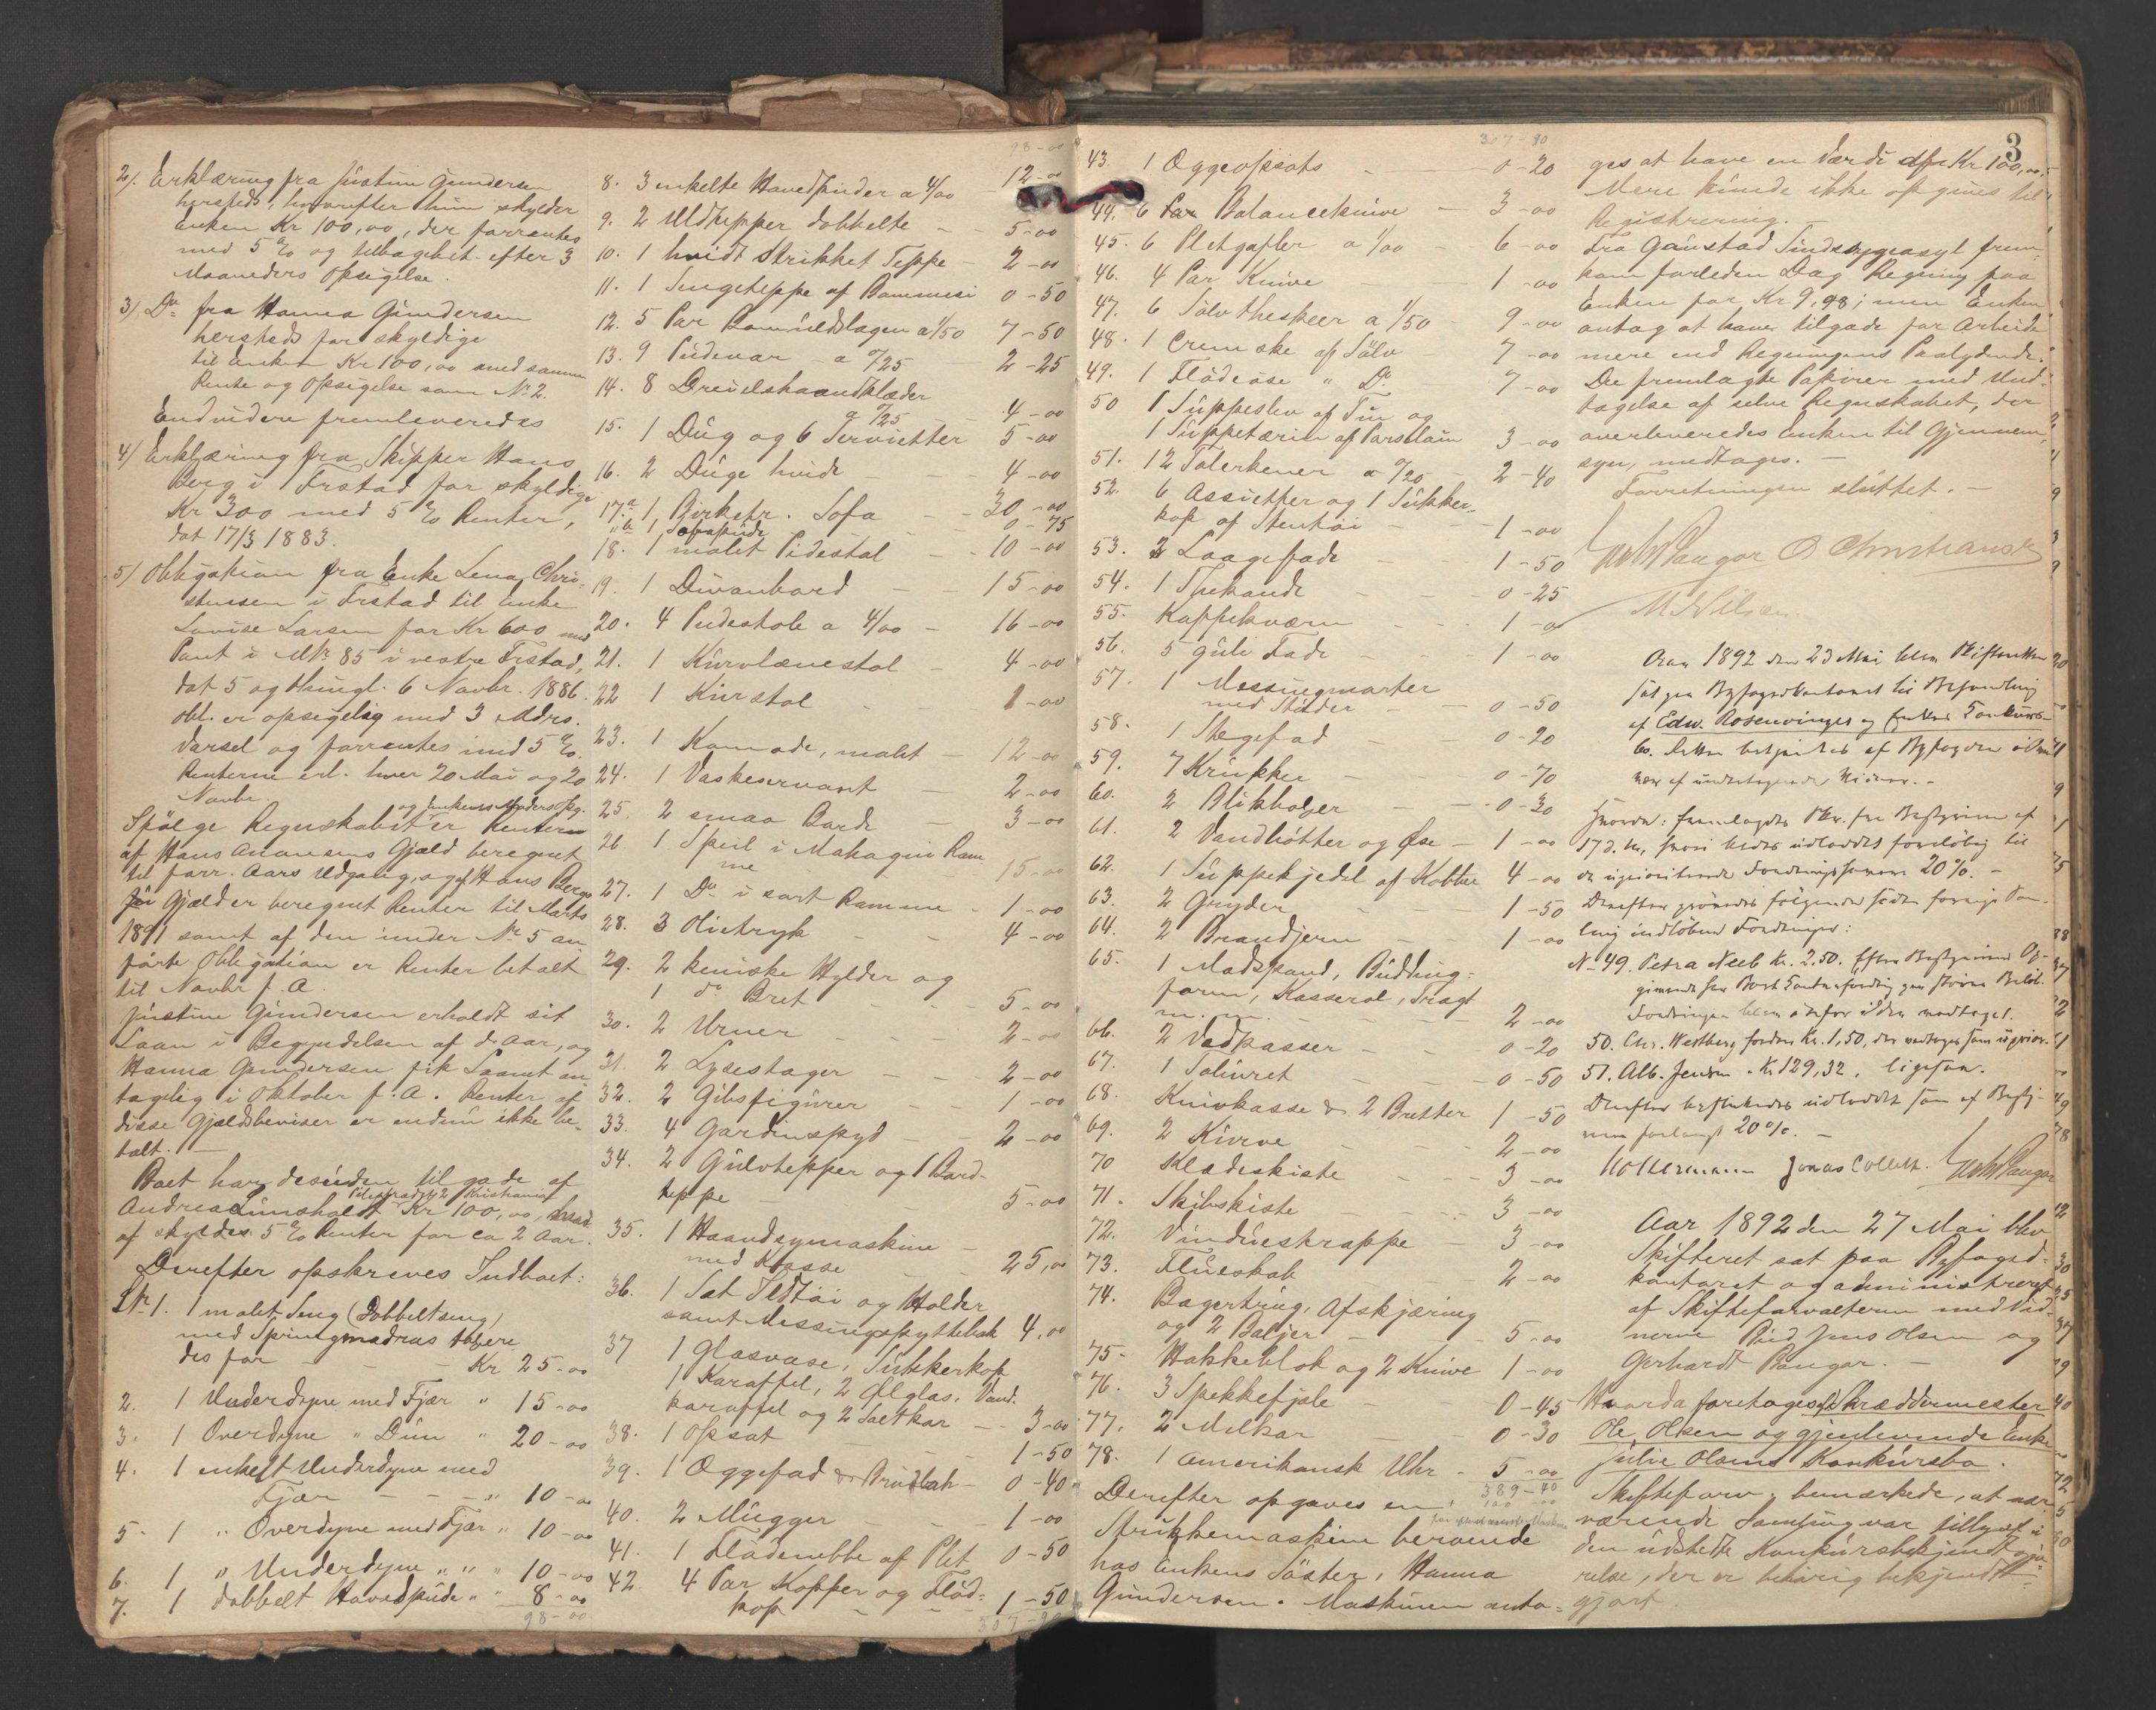 2). Erklæring fra Justine Gundersen
hersteds, hvorefter hun skylder
Enken Kr 100,00, der forrentes
med 5 % og tilbagebet. efter 3
Maaneders Opsigelse.
3) Do fra Hanna Gundersen
hersteds for skyldige
til Enken Kr 100,00 med samme
Rente og Opsigelse som No 2.
Endvidere fremleveredes
4) Erklæring fra Skipper Hans
Berg i Frstad for skyldige
Kr 300 med 5 % Renter,
dat 17/3 1883.
5) Obligation fra Enke Lena Chri-
stensen i Frstad til Enke
Lovise Larsen for Kr 600 med
Pant i MNr 85 i vestre Frstad,
dat 5 og thingl. 6 Novbr. 1886.
Obl. er opsigelig med 3 Mdrs.
Varsel og forrentes med 5 %.
Renterne erl. hver 20 Mai og 20
Novbr.
Ifølge Regnskabet og Enkens Opg. er Renterne
af Hans Gjæld beregnet
til forr. Aars Udgang, og af Hans Bergs
Gjæld er beregnet Renter til Marts
1891 samt af den under No 5 an-
førte Obligation er Renter betalt
til Novbr f. A.
Justine Gundersen erholdt sit
Laan i Begyndelsen af d. Aar, og
Hanna Gundersen fik Laanet an-
tagelig i Oktober f. A. Renter af
disse Gjældsbeviser er endnu ikke be-
talt. —
Boet har desuden til gode af
Andrea Lunsholdt Kristiania Kr 100,00, hvoraf
skyldes 5 % Renter for ca 2 Aar.
Derefter opskreves Indboet:
No 1. 1 malet Seng (Dobbeltseng)
med Springmadras
des for - - - Kr 25-00
2. 1 Underdyne med Fjær " 15-00
3. 1 Overdyne " Dun " 20-00
4. 1 enkelt Underdyne med
Fjær - - - " 10-00
5. 1 " Overdyne med Fjær " 10-00
6. 1 " Underdyne " " " 10-00
7. 1 dobbelt Hovedpude " 8-00
98-00
98-00
8. 3 enkelte Hovedpuder a 4/00 12-00
9. 2 Uldtepper dobbelte - - 5-00
10. 1 hvidt Strikket Teppe - 2-00
11. 1 Sengeteppe af Bommesi 0-50
12. 5 Par Bomuldslagen a 1/50 7-50
13. 9 Pudevar a 0/25 2-25
14. 8 Dreielshaandklæder
a 0/25 4-00
15. 1 Dug og 6 Servietter 5-00
16. 2 Duge hvide - - 4-00
17.a 1 Birketr. Sofa - - 30-00
" b 1 Sofapude - - 0-75
18. 1 malet Pidestal - - 10-00
19. 1 Divanbord - - 15-00
20. 4 Pudestole a 4/00 - 16-00
21. 1 Kurvlænestol - 4-00
22 1 Kurstol - - 1-00
23. 1 Komode, malet - 12-00
24. 1 Vaskeservant - 2-00
25. 2 smaa Borde - 3-00
26 1 Speil i Mahogni Ram-
me - - 15-00
27. 1 Do i sort Ramme - 1-00
28. 3 Olietryk - - 4-00
29. 2 keniske Hylder og
1 do Bret - - 5-00
30. 2 Urner - - - 2-00
31. 2 Lysestager - - - 2-00
32. 2 Gibsfigurer - - 1-00
33. 4 Gardinspyd - - 2-00
34. 2 Gulvtepper og 1 Bord-
teppe - - - 5-00
35. 1 Haandsymaskine -
med Kasse - - 25,00
36. 1 Sat Ildtøi og Holder
samt Messingspyttebak 4,00
37 1 Glasvase, Sukkerkop
1 Karaffel, 2 Ølglas, Vand-
karaffel og 2 Saltkar - - 3-00
38. 1 Opsat - - 1-50
39. 1 Æggefad & Brødbak - 0-40
40. 2 Mugger - - - 1-00
41. 1 Flødenebbe af Plet 0-50
42 4 Par Kopper og Flød-
kop - - - 1-50
307-90
307-90
3
43. 1 Æggeopsats - - 0-20
44. 6 Par Balanceknive - 3-00
45. 6 Pletgafler a 1/00 - - 6-00
46. 4 Par Knive - - 1-00
47. 6 Sølvtheskeer a 1/50 - 9-00
48. 1 Cremske af Sølv - 7-00
49. 1 Flødeøse " Do - 7-00
50 1 Suppeslev af Tin og
1 Suppeterin af Porselain 3-00
51. 12 Talerkener a 0/20 - 2-40
52. 6 Assietter og 1 Sukker-
kop af Stentøi - - 1-00
53. 2 Laagefade - - 1-50
54. 1 Thekande - - - 0-25
55. Kaffekværn - - - 1-00
56. 5 gule Fade - - - 1-00
57. 1 Messingmorter
med Støder - - 0-50
58. 1 Stegefad - - 0-20
59. 7 Krukker - - - 0-70
60. 2 Blikbolger - - 0-30
61. 2 Vandbøtter og Øse - 1-00
62. 1 Suppekjedel af Kobber 4-00
63. 2 Gryder - - - 1-50
64. 2 Brandjern - - 1-00
65. 1 Madspand, Budding-
form, Kasserol, Tragt
m. m. - - - 2-00
66. 2 Vedkasser - - - 0-20
67. 1 Soluret - - 0-50
68. Knivkasse & 2 Bretter 1-50
69. 2 Kurve - - - 2-00
70 Klædeskiste - - - 3-00
71. Skibskiste - - - 3-00
72. Vinduestrappe - - 3-00
73. Flueskab - - 2-00
74. Bagertrug, Afskjæring
og 2 Baljer - - - 5-00
75. Hakkeblok og 2 Knive 1-00
76. 3 Spekkefjele - - 0-45
77. 2 Melkar - - 0-30
78. 1 amerikansk Uhr - 5-00
389-40
100-00
Derefter opgaves en
Strikkemaskine beroende
hos Enkens Søster, Hanna
Gundersen. Maskinen anta-
ges at have en Værdi af Kr 100,00.
Mere kunde ikke opgives til
Registrering. —
Fra Gaustad Sindssygeasyl frem-
kom forleden Dag Regning paa
Enken for Kr 9,98; men Enken
antog at have tilgode for Arbeide
mere end Regningens Paalydende.
De fremlagte Papirer med Und-
tagelse af selve Regnskabet, der
overleveredes Enken til Gjennem-
syn, medtages. —
Forretningen sluttet. —
Gerh Paugar O Christiansen
M. Nilsen.
Aar 1892 den 23 Mai blev Skifteretten
sat paa Byfogedkontoret til Behandling
af Edw. Rosenvinges og Hustrus Konkurs-
bo. Retten betjentes af Byfogden
af undertegnede Vidner. —
Hvorda: fremlagdes Skr. fra Bestyreren af
17 d. M., hvori bedes udloddet foreløbig til
de uprioriterede Fordringshavere 20 %. —
Derefter prøvedes følgende siden forrige Sam-
ling indløbne Fordringer:
No 49. Petra Neeb Kr. 2.50. Efter Bestyrerens Op-
givende har Boet Kontrafordring paa større Beløb.
Fordringen blev derfor ikke modtaget.
50. Chr. Westberg fordrer Kr. 1,50, der vedtages som uprior.
51. Alb. Jensen - Kr 129,32, ligesaa.
Derefter besluttedes udloddet som af Besty-
reren forlangt 20 %. —
Hermann Jonas Collett. Gerh Paugar
Aar 1892 den 27 Mai blev
Skifteret sat paa Byfoged-
kontoret og administreret
af Skifteforvalteren med Vid-
nerne Jens Olsen og
Gerhardt Paugar. —
Hvorda foretoges Skræddermester
Ole Olsen og gjenlevende Enke
Julie Olsens Konkursbo.
Skifteforv. bemærkede, at nær-
værende Samling var tillyst i
den udstedte Konkursbekjendtgjø-
relse, der er behørig bekjendt-
gjort.